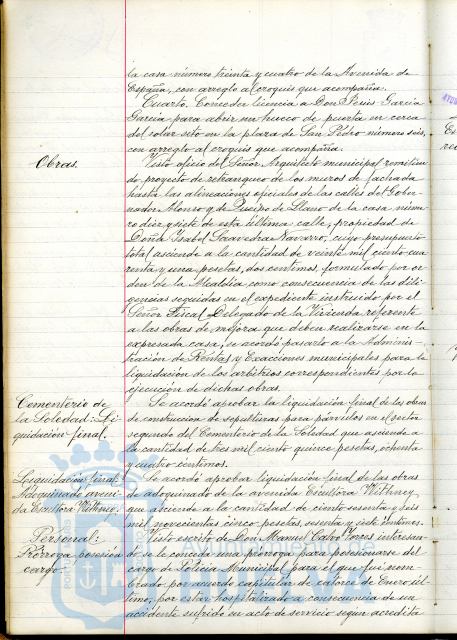 la casa número treinta y cuatro de la Avenida de
España, con arreglo al croquis que acompaña.
Cuarto. Conceder licencia a Don Jesús García
García para abrir un hueco de puerta en cerca
del solar sito en la plaza de San Pedro número seis,
con arreglo al croquis que acompaña.
Obras.
Visto oficio del Señor Arquitecto municipal remitien-
do proyecto de retranqueo de los muros de fachada
hasta las alineaciones oficiales de las calles del Gober-
nador Alonso y de Queipo de Llano de la casa núme-
ro diez y siete de esta última calle, propiedad de
Doña Isabel Saavedra Navarro, cuyo presupuesto
total asciende a la cantidad de veinte mil ciento cua-
renta y una pesetas, dos centimos, formulado por or-
den de la Alcaldia como consecuencia de las dili-
gencias seguidas en el expediente instruido por el
Señor Fiscal Delegado de la Vivienda referente
a las obras de mejora que deben realizarse en la
expresada casa, se acordó pasarlo a la Adminis-
tración de Rentas y Exacciones municipales para la
liquidación de los arbitrios correspondientes por la
ejecución de dichas obras.
Cementerio de
la Soledad: Li-
quidación final.
Se acordó aprobar la liquidación final de las obras
de construccion de sepulturas para párvulos en el sector
segundo del Cementerio de la Soledad que asciende a
la cantidad de tres mil ciento quince pesetas, ochenta
y cuatro centimos.
Liquidación final
Adoquinado aveni-
da Escultora Withney.
Se acordó aprobar liquidación final de las obras
de adoquinado de la avenida Escultora Withney,
que asciende a la cantidad de ciento sesenta y seis
mil novecientas cinco pesetas, sesenta y siete centimos.
Personal:
Prórroga posesión
cargo.
Visto escrito de Don Manuel Calvo Flores interesan-
do se le conceda una prorroga para posesionarse del
cargo de Policia Municipal para el que fué nom-
brado por acuerdo capitular de catorce de Enero úl-
timo, por estar hospitalizado a consecuencia de un
accidente sufrido en acto de servicio según acredita